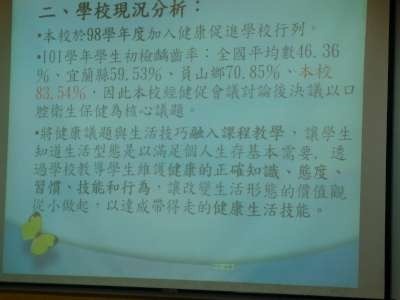 二、學校現況分析：
•本校於98學年度加入健康促進學校行列。
•101學年學生初檢齲齒率：全國平均數46.36
%、宜蘭縣59.53%、員山鄉70.85%、本校
83.54%，因此本校經健促會議討論後決議以口
腔衛生保健為核心議題。
•將健康議題與生活技巧融入課程教學，讓學生
知道生活型態是以滿足個人生存基本需要，透
過學校教導學生維護健康的正確知識、態度、
習慣、技能和行為，讓改變生活形態的價值觀
從小做起，以達成帶得走的健康生活技能。